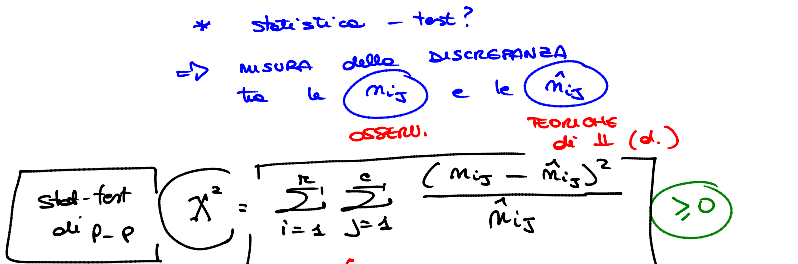 * statistica - test?
⇒ MISURA della DISCREPANZA
tra le n_ij e le n̂_ij
OSSERV. TEORICHE
di ⫫ (d.)
stat-test
di p-p
χ² = Σ_{i=1}^{r} Σ_{j=1}^{c} (n_ij - n̂_ij)² / n̂_ij ≥ 0